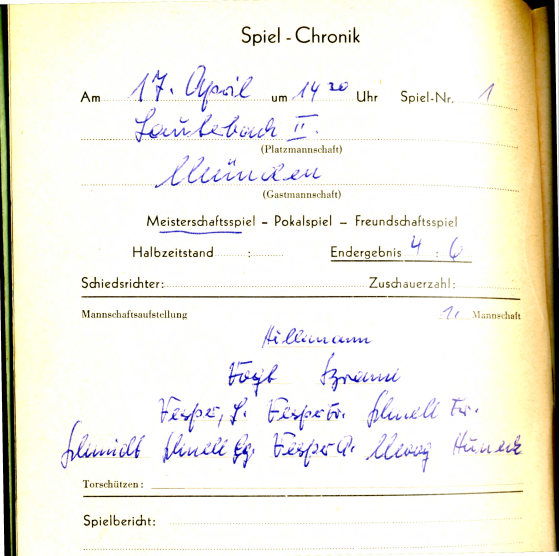 Spiel - Chronik
Am 17. April um 14 20 Uhr Spiel-Nr. 1
Lauterbach II.
(Platzmannschaft)
Münden
(Gastmannschaft)
Meisterschaftsspiel – Pokalspiel – Freundschaftsspiel
Halbzeitstand : Endergebnis 4 : 6
Schiedsrichter: Zuschauerzahl:
Mannschaftsaufstellung 1. Mannschaft
Hillemann
Vogt
Vesper, H. Vesper Fr. Schnell Fr.
Schmidt Schnell Vesper
Torschützen:
Spielbericht: